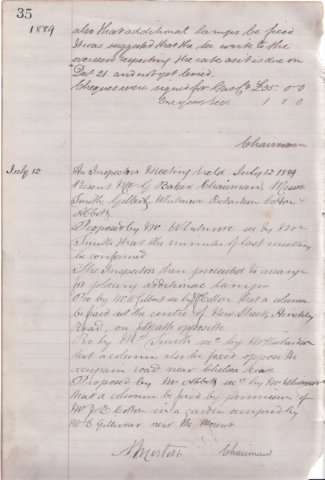 35
1889
also that additional lamps be fixed
It was suggested that the Sec write to the
overseers respecting the rate as it is due on
21 and not yet levied.
Cheques were signed for Gas Co £35. 0 0
Sec. 1 1 0
Chairman
July 12
An Inspectors Meeting held July 12 1889
Present Mr G Baker Chairman, Messrs
Smith, Gilbert, Whitmore Richardson Cotton &
Abbott
Proposed by Mr Whitmore sec by Mr
Smith that the minutes of last meeting
be confirmed
The Inspectors then proceeded to arrange
for placing additional lamps
Pro by Mr Gilbert sec by Mr Cotton that a column
be fixed at the centre of New Street, Hinckley
Road, on footpath opposite
Pro by Mr Smith sec by Mr Richardson
that a column also be fixed opposite the
road near Chelsea Row
Proposed by Mr Abbott sec by Mr Whitmore
that a column be fixed by permission of
Mr J. E. Cotton in a garden occupied by
Mr C near the Mount
Chairman